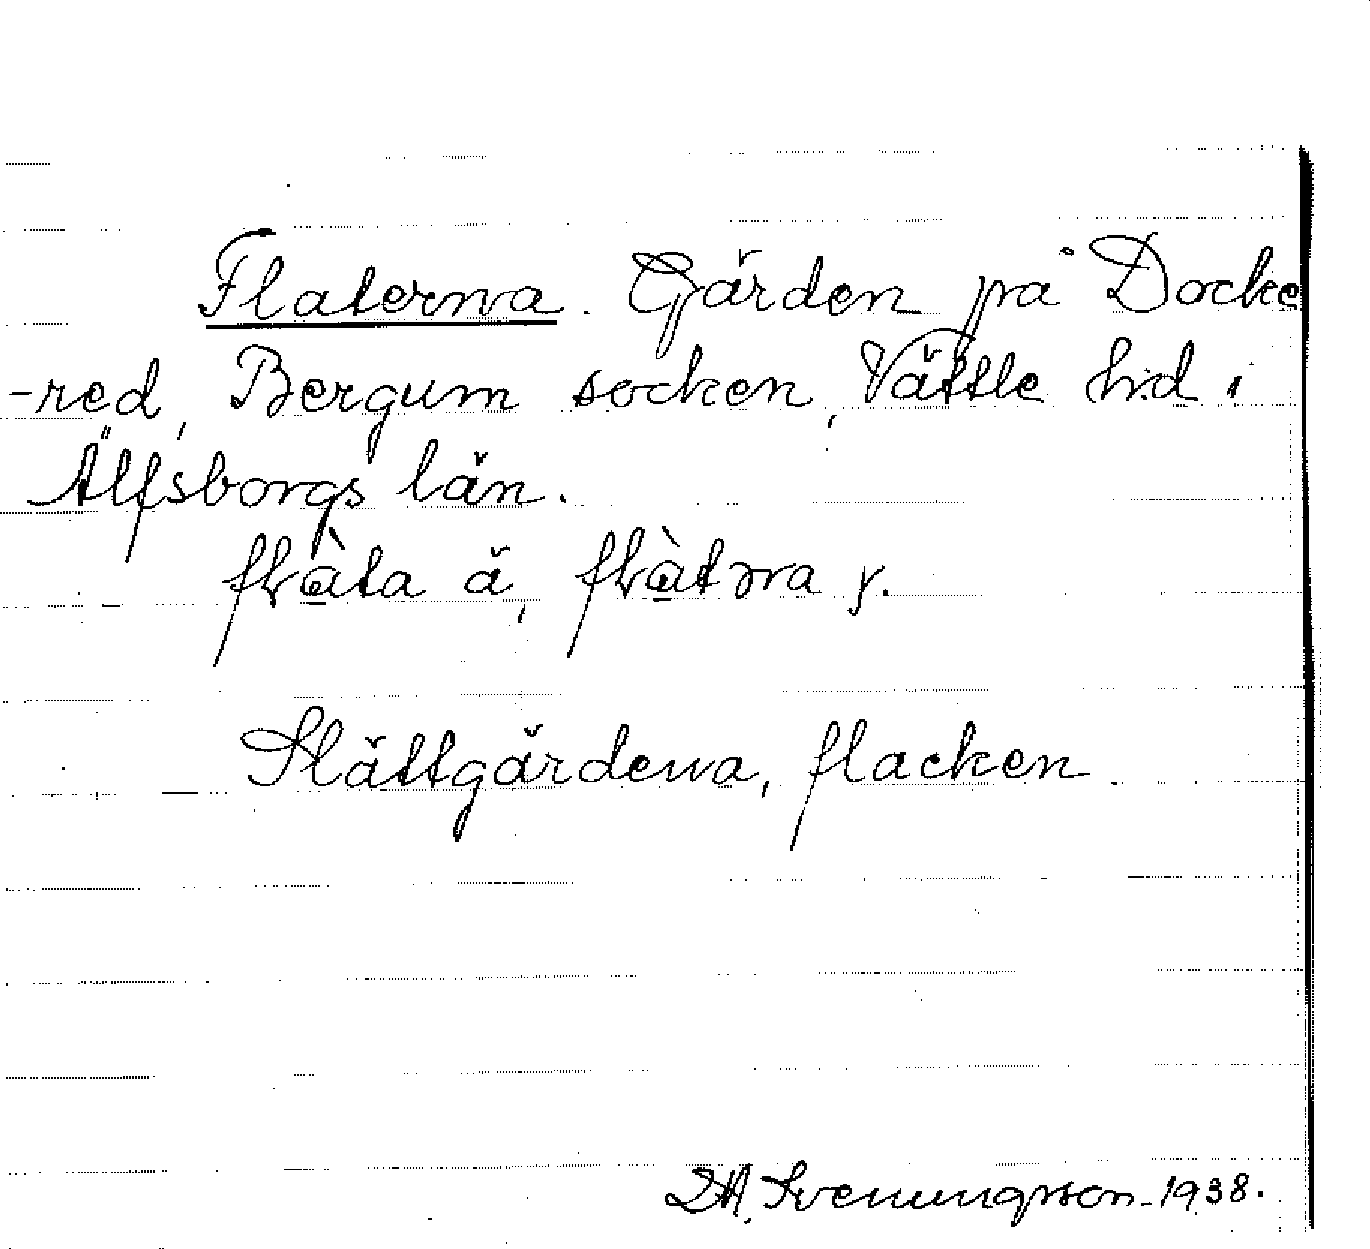 Flaterna. Gärden på Docke
-red, Bergum socken, Vättle hd i
Älfsborgs län.
flàta ä, flàtəna y.
Slättgärdena, flacken
Svenungsson-1938.